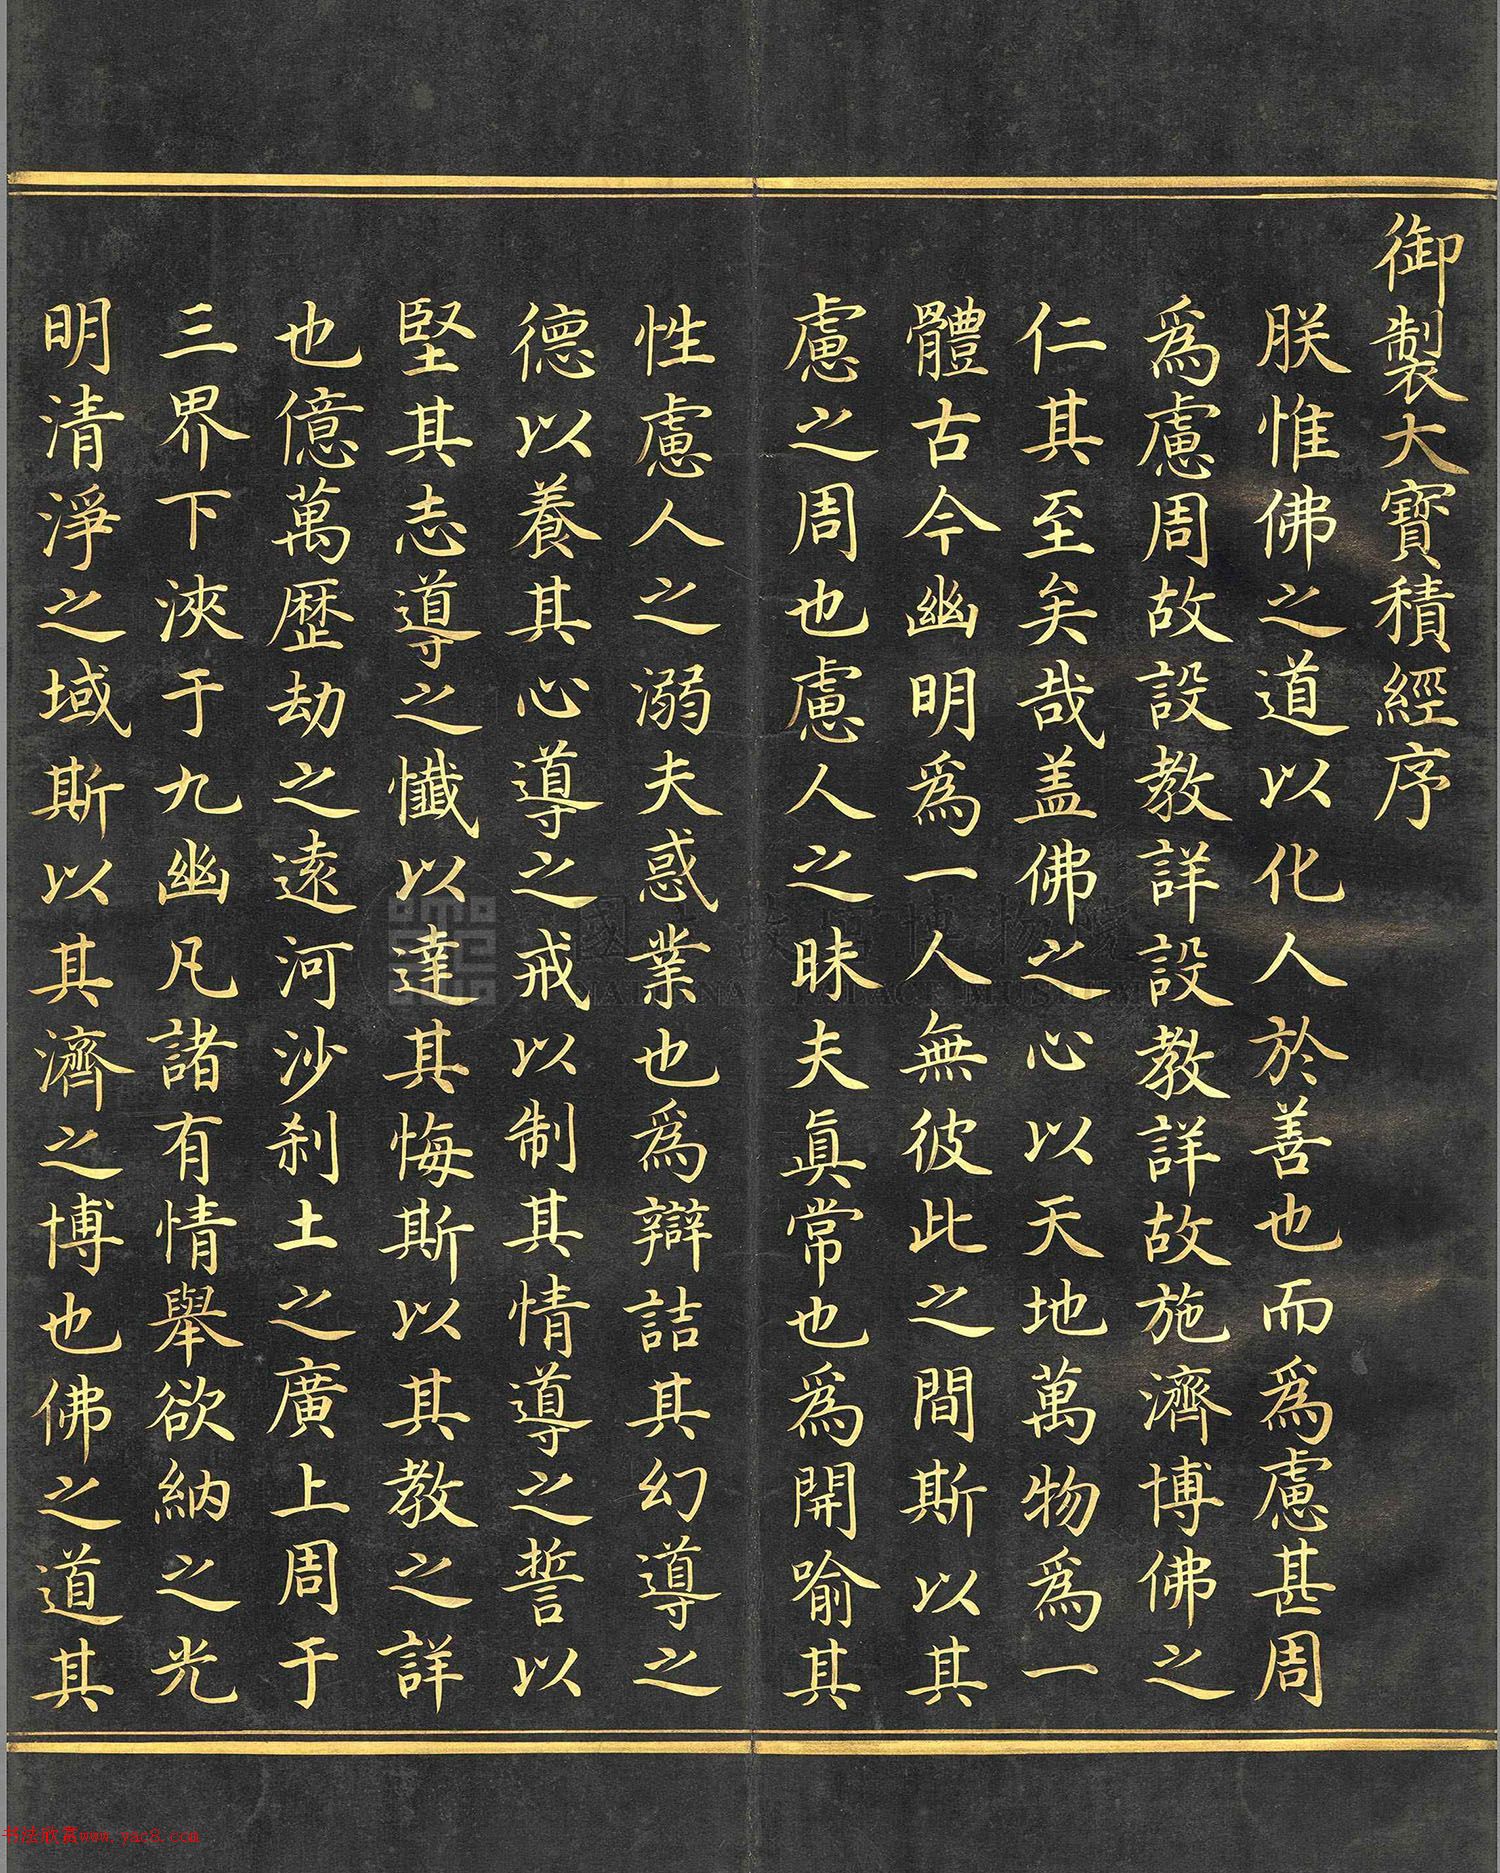 御製大寶積經序
朕惟佛之道以化人於善也而爲慮甚周
爲慮周故設教詳設教詳故施濟博佛之
仁其至矣哉盖佛之心以天地萬物爲一
體古今幽明爲一人無彼此之間斯以其
慮之周也慮人之昧夫眞常也爲開喻其
性慮人之溺夫惑業也爲辯詰其幻導之
德以養其心導之戒以制其情導之誓以
堅其志導之懺以達其悔斯以其教之詳
也億萬歷劫之遠河沙刹土之廣上周于
三界下浹于九幽凡諸有情舉欲納之光
明清淨之域斯以其濟之博也佛之道其
國立故宮博物院
NATIONAL PALACE MUSEUM
书法欣赏www.yac8.com